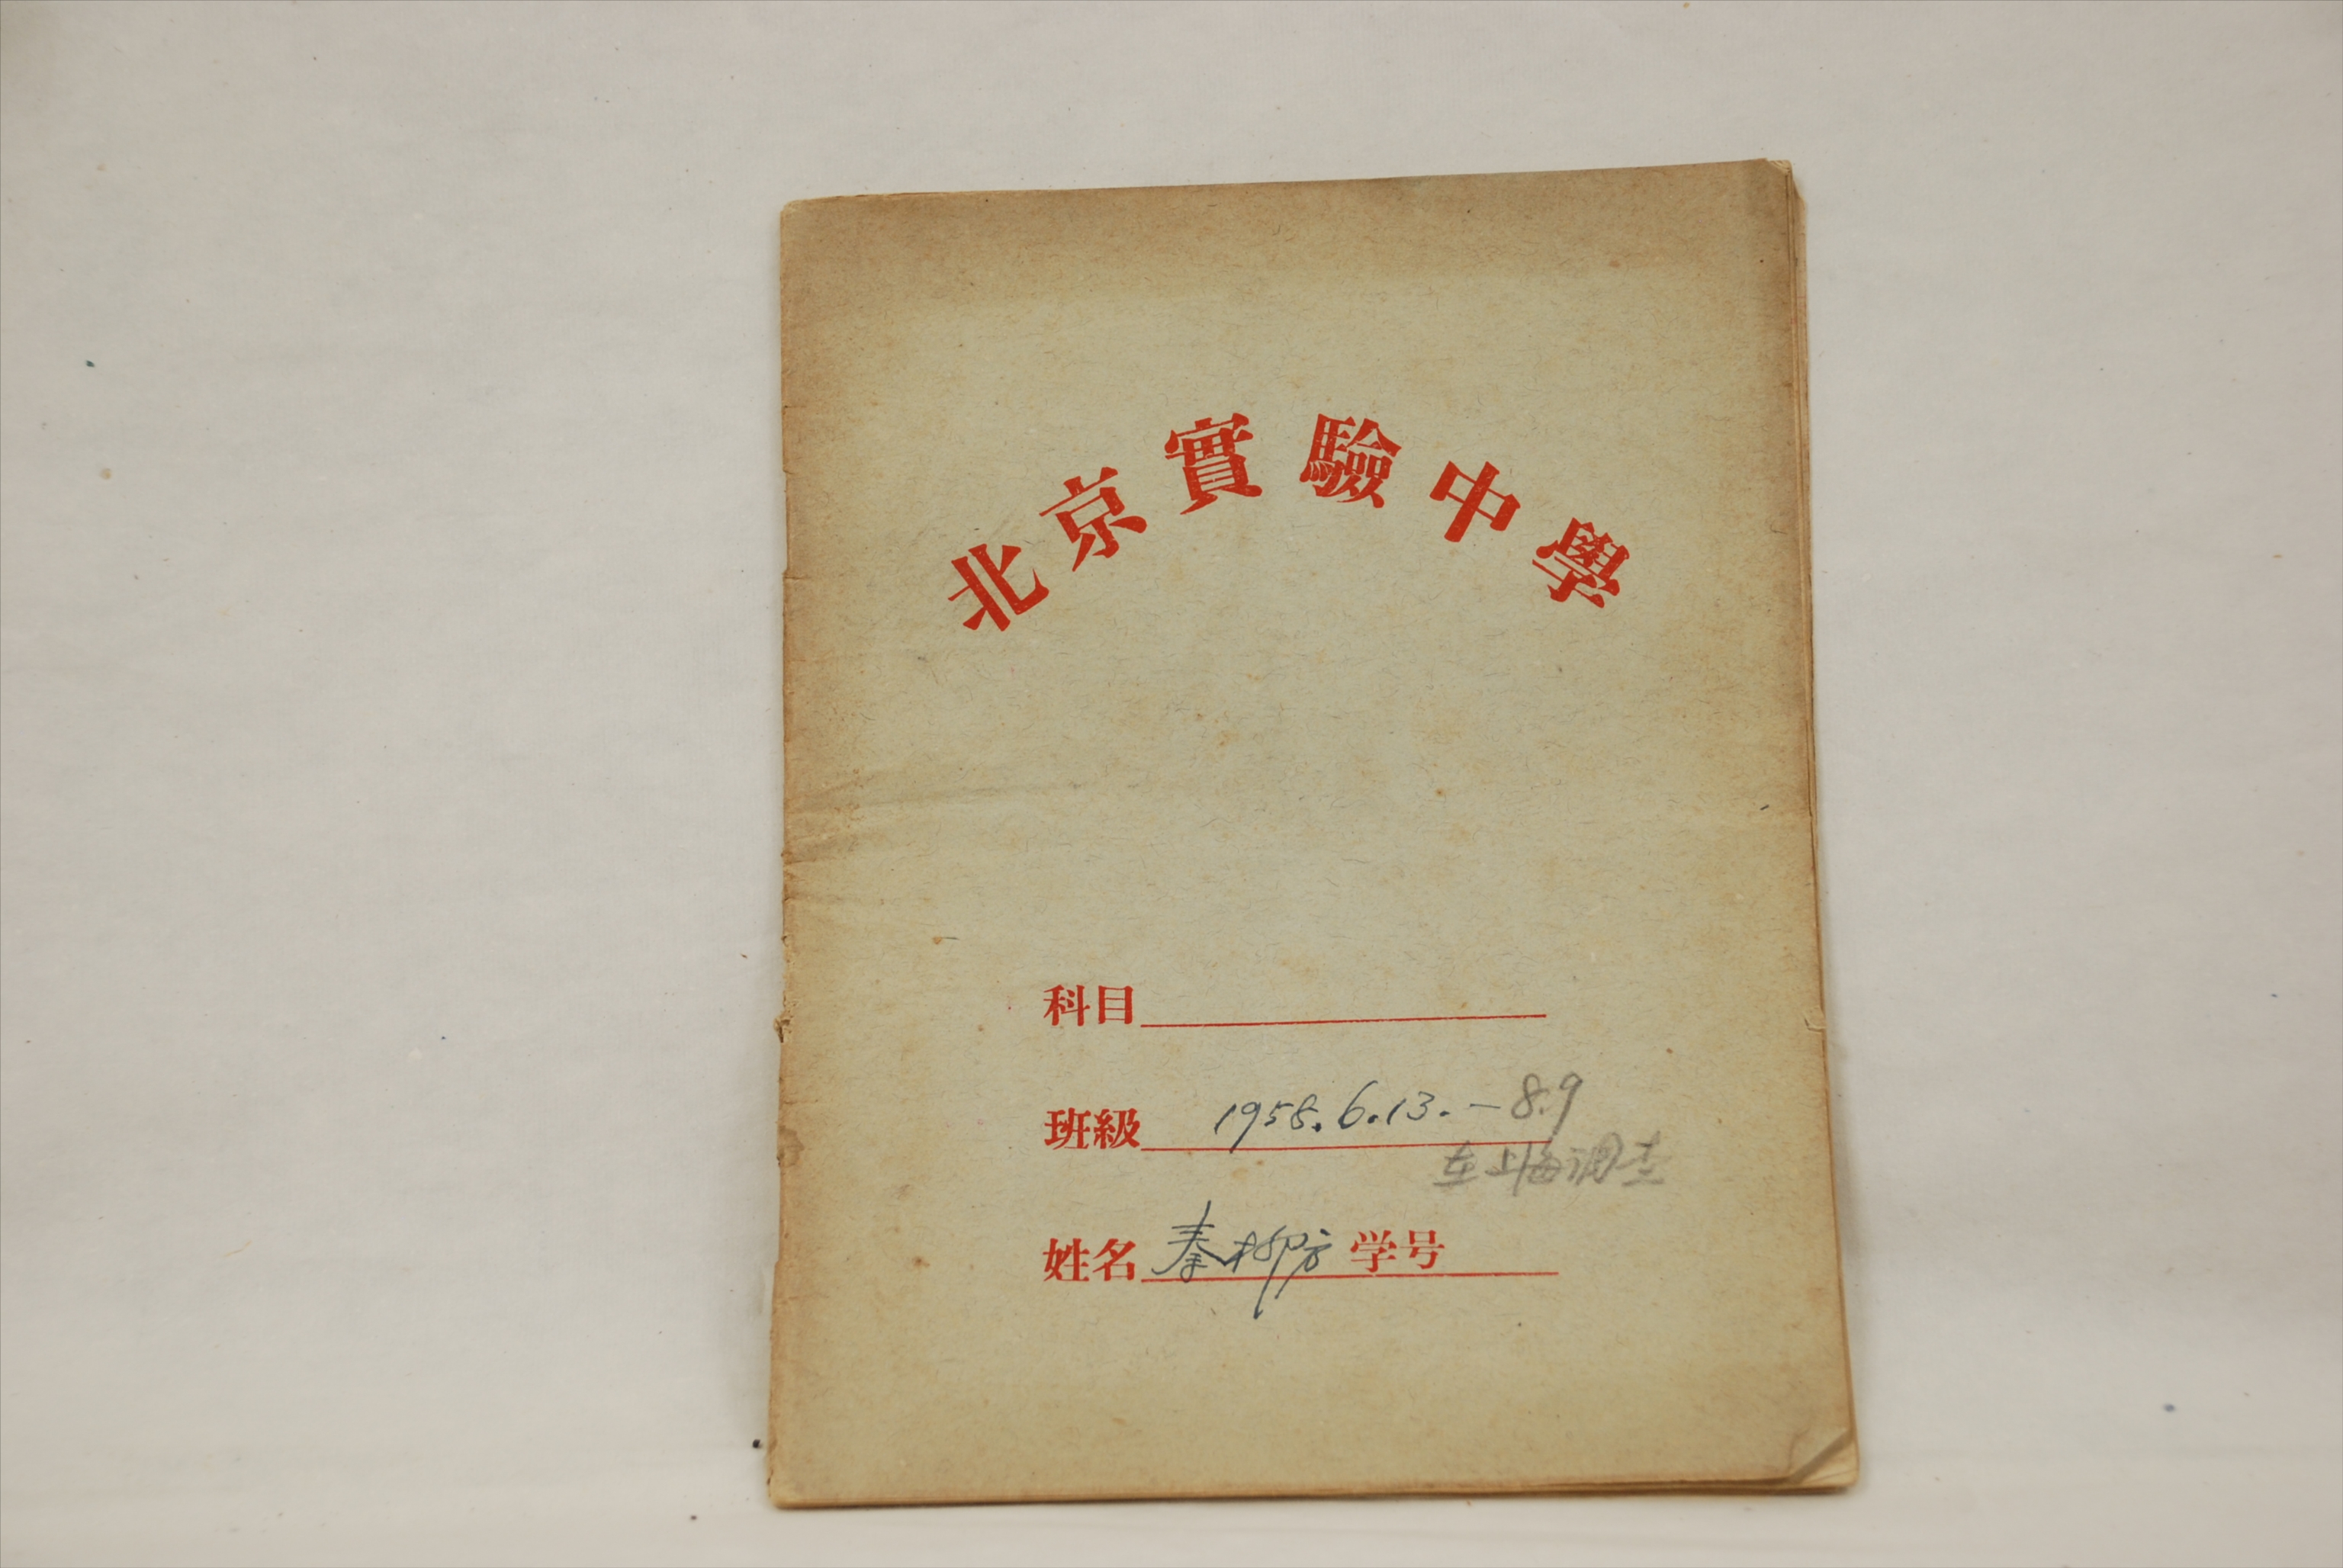 北京實驗中學
科目
班級 1958.6.13.—8.9
在上海调查
姓名 秦柳方 学号